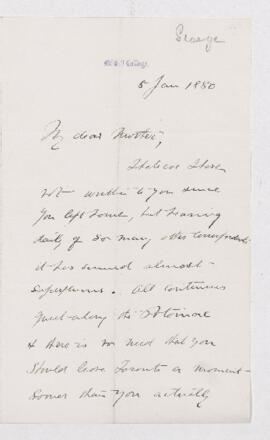 George
5 Jan 1880
My dear Mother,
I believe I have
not written to you since
you left home, but hearing
daily of so many other correspondents
it has seemed almost
superfluous. All continues
quiet along the
& there is no need that you
should leave Toronto a moment
sooner than you actually